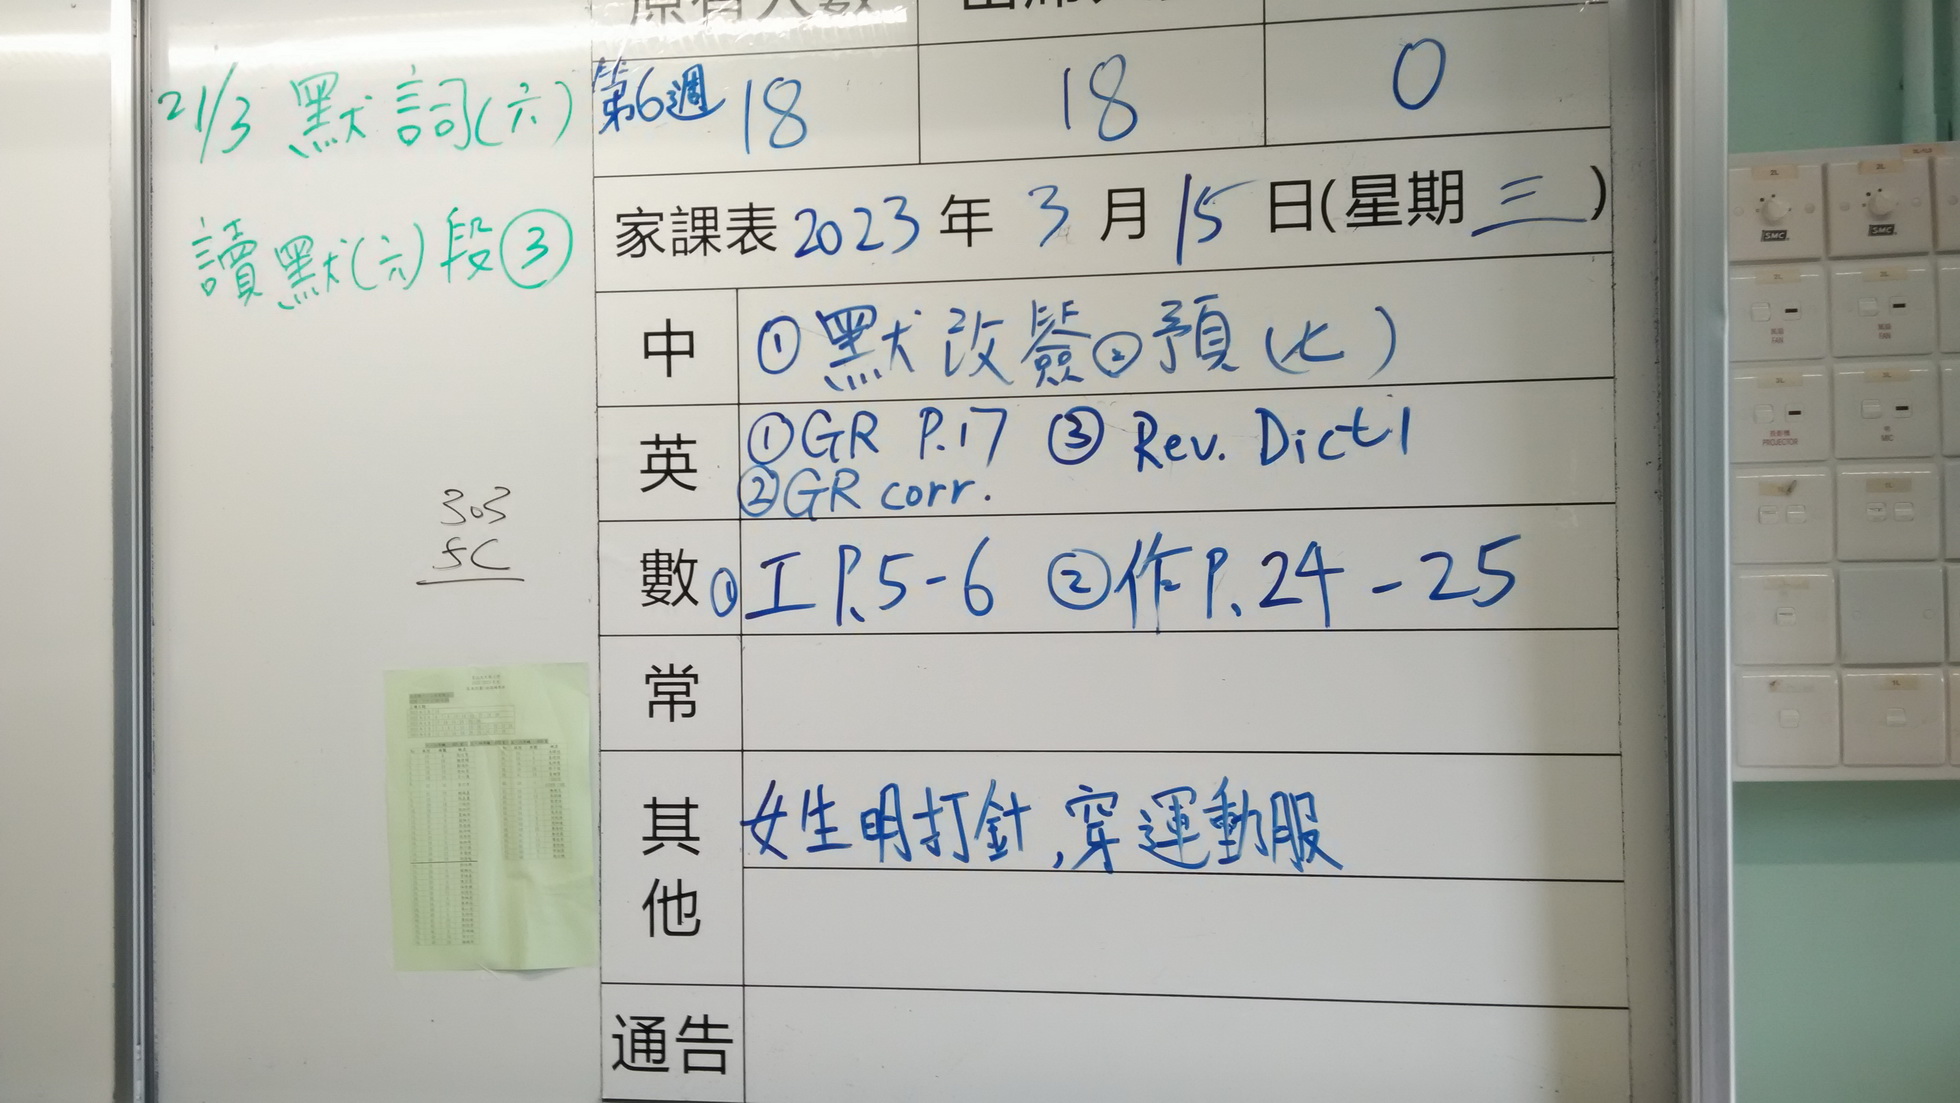 21/3 默詞(六)
讀默(六)段③
303
5C
第6週 18 18 0
家課表 2023 年 3 月 15 日(星期 三)
中 ①默改簽②預(七)
英 ①GR P.17 ③ Rev. Dict 1
②GR corr.
數 ①工 P.5-6 ②作 P.24-25
常
其他 女生明打針,穿運動服
通告
SMC
SMC
FAN
FAN
PROJECTOR
MIC